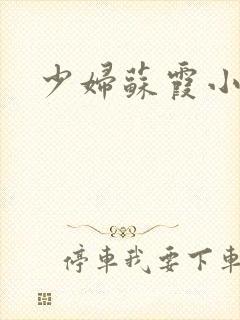 少婦蘇霞小
停車我要下車